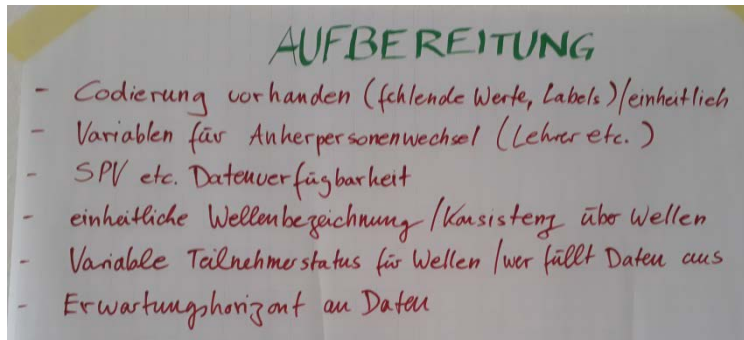 AUFBEREITUNG
- Codierung vorhanden (fehlende Werte, Labels)/einheitlich
- Variablen für Ankerpersonenwechsel (Lehrer etc.)
- SPV etc. Datenverfügbarkeit
- einheitliche Wellenbezeichnung/Konsistenz über Wellen
- Variable Teilnehmerstatus für Wellen/wer füllt Daten aus
- Erwartungshorizont an Daten